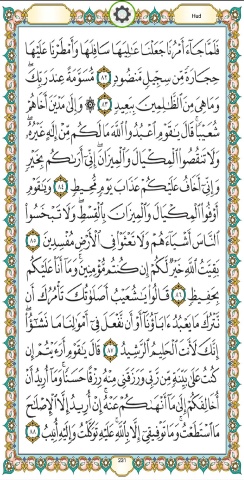 Hud
فَلَمَّا جَاءَ أَمْرُنَا جَعَلْنَا عَالِيَهَا سَافِلَهَا وَأَمْطَرْنَا عَلَيْهَا
حِجَارَةً مِّن سِجِّيلٍ مَّنضُودٍ ٨٢ مُّسَوَّمَةً عِندَ رَبِّكَ
وَمَا هِيَ مِنَ الظَّالِمِينَ بِبَعِيدٍ ٨٣ ۞ وَإِلَىٰ مَدْيَنَ أَخَاهُمْ
شُعَيْبًا قَالَ يَا قَوْمِ اعْبُدُوا اللَّهَ مَا لَكُم مِّنْ إِلَٰهٍ غَيْرُهُ
وَلَا تَنقُصُوا الْمِكْيَالَ وَالْمِيزَانَ إِنِّي أَرَاكُم بِخَيْرٍ
وَإِنِّي أَخَافُ عَلَيْكُمْ عَذَابَ يَوْمٍ مُّحِيطٍ ٨٤ وَيَا قَوْمِ
أَوْفُوا الْمِكْيَالَ وَالْمِيزَانَ بِالْقِسْطِ وَلَا تَبْخَسُوا
النَّاسَ أَشْيَاءَهُمْ وَلَا تَعْثَوْا فِي الْأَرْضِ مُفْسِدِينَ ٨٥
بَقِيَّتُ اللَّهِ خَيْرٌ لَّكُمْ إِن كُنتُم مُّؤْمِنِينَ وَمَا أَنَا عَلَيْكُم
بِحَفِيظٍ ٨٦ قَالُوا يَا شُعَيْبُ أَصَلَاتُكَ تَأْمُرُكَ أَن
نَّتْرُكَ مَا يَعْبُدُ آبَاؤُنَا أَوْ أَن نَّفْعَلَ فِي أَمْوَالِنَا مَا نَشَاءُ
إِنَّكَ لَأَنتَ الْحَلِيمُ الرَّشِيدُ ٨٧ قَالَ يَا قَوْمِ أَرَأَيْتُمْ إِن
كُنتُ عَلَىٰ بَيِّنَةٍ مِّن رَّبِّي وَرَزَقَنِي مِنْهُ رِزْقًا حَسَنًا وَمَا أُرِيدُ أَنْ
أُخَالِفَكُمْ إِلَىٰ مَا أَنْهَاكُمْ عَنْهُ إِنْ أُرِيدُ إِلَّا الْإِصْلَاحَ
مَا اسْتَطَعْتُ وَمَا تَوْفِيقِي إِلَّا بِاللَّهِ عَلَيْهِ تَوَكَّلْتُ وَإِلَيْهِ أُنِيبُ ٨٨
231